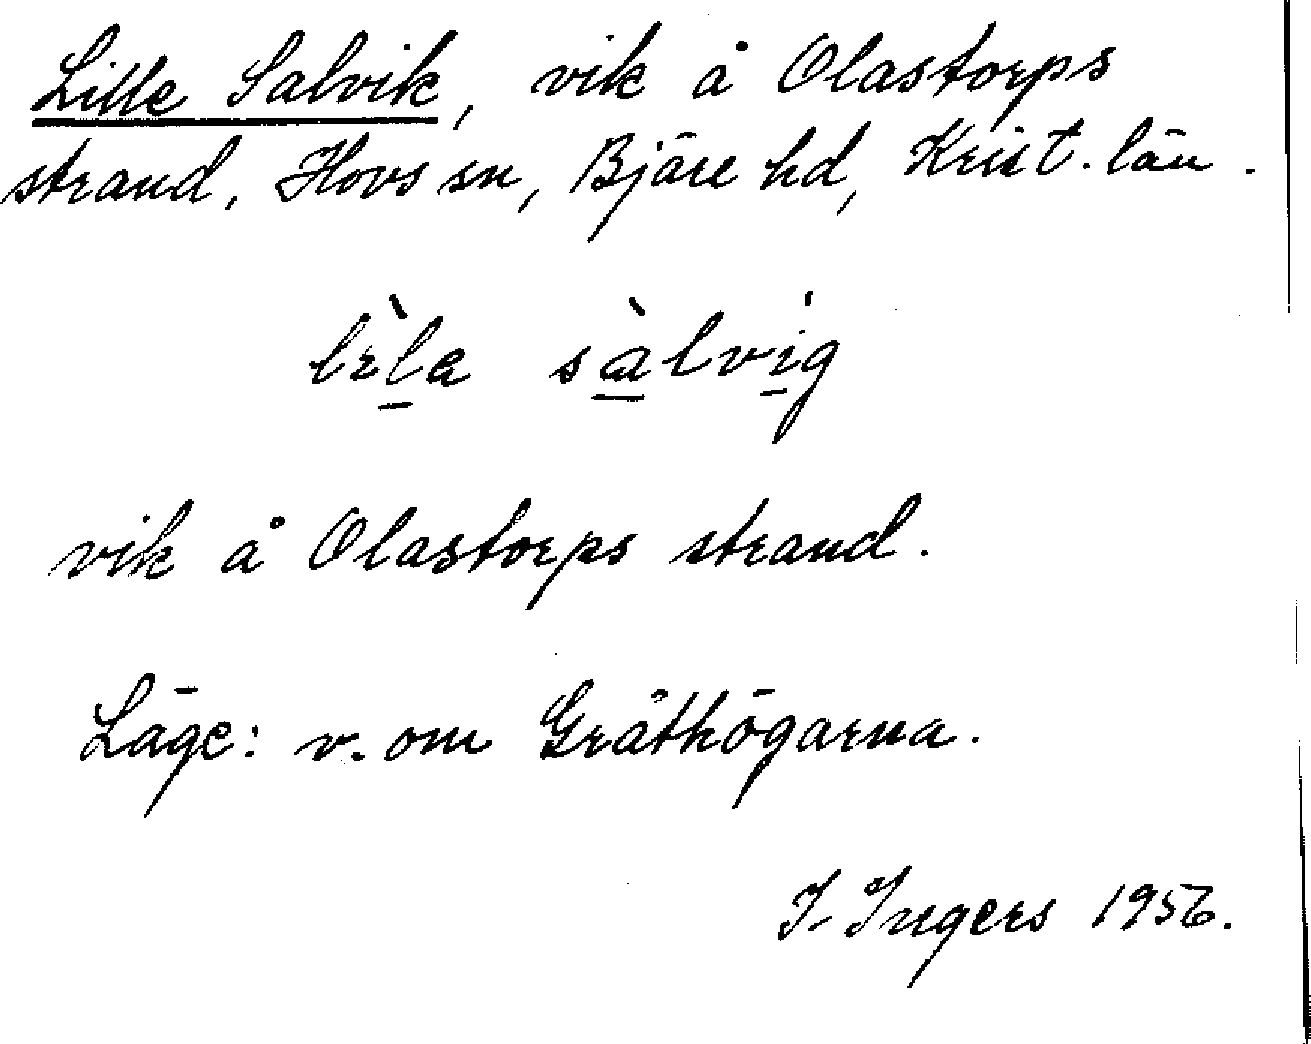 Lille Salvik, vik å Olastorps
strand, Hovs sn, Bjäre hd, Krist. län.
lɛ̀la sàlvig
vik å Olastorps strand.
Läge: v. om Gråthögarna.
I. Ingers 1956.